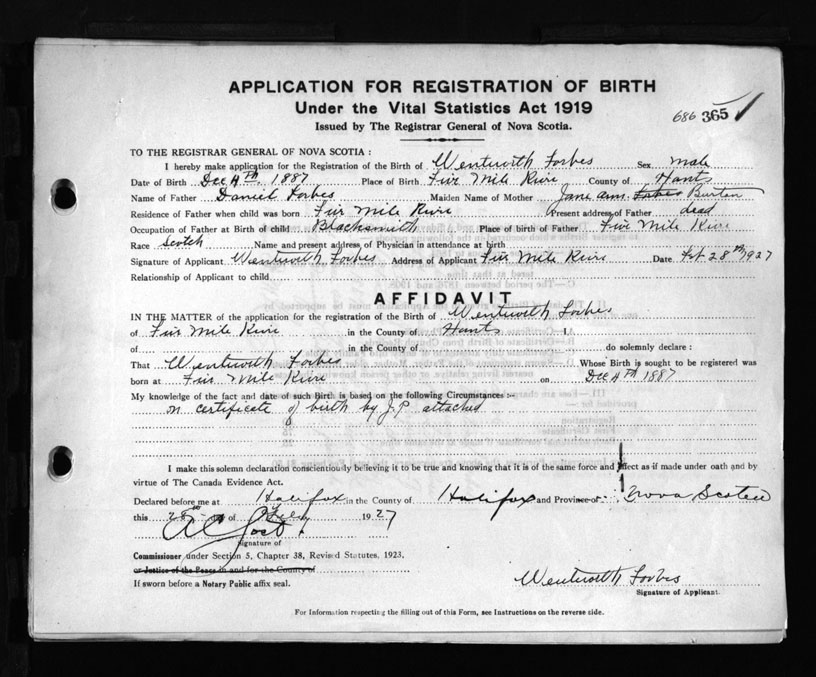 APPLICATION FOR REGISTRATION OF BIRTH
Under the Vital Statistics Act 1919
686 365
Issued by The Registrar General of Nova Scotia.
TO THE REGISTRAR GENERAL OF NOVA SCOTIA :
I hereby make application for the Registration of the Birth of Wentworth Forbes Sex male
Date of Birth Dec 4th 1887 Place of Birth Five Mile River County of Hants
Name of Father Daniel Forbes Maiden Name of Mother Jane Ann. Forbes Burton
Residence of Father when child was born Five Mile River Present address of Father dead
Occupation of Father at Birth of child Blacksmith Place of birth of Father Five Mile River
Race Scotch Name and present address of Physician in attendance at birth
Signature of Applicant Wentworth Forbes Address of Applicant Five Mile River Date Feb 28th 1927
Relationship of Applicant to child
AFFIDAVIT
IN THE MATTER of the application for the registration of the Birth of Wentworth Forbes
of Five Mile River in the County of Hants
of in the County of do solemnly declare :
That Wentworth Forbes Whose Birth is sought to be registered was
born at Five Mile River on Dec 4th 1887
My knowledge of the fact and date of such Birth is based on the following Circumstances :-
on certificate of birth by J.P attached
I make this solemn declaration conscientiously believing it to be true and knowing that it is of the same force and effect as if made under oath and by
virtue of The Canada Evidence Act.
Declared before me at Halifax in the County of Halifax and Province of Nova Scotia
this 28th day of Feby 1927
Signature of
Commissioner under Section 5, Chapter 38, Revised Statutes, 1923.
or Justice of the Peace in and for the County of
If sworn before a Notary Public affix seal.
Wentworth Forbes
Signature of Applicant.
For Information respecting the filling out of this Form, see Instructions on the reverse side.